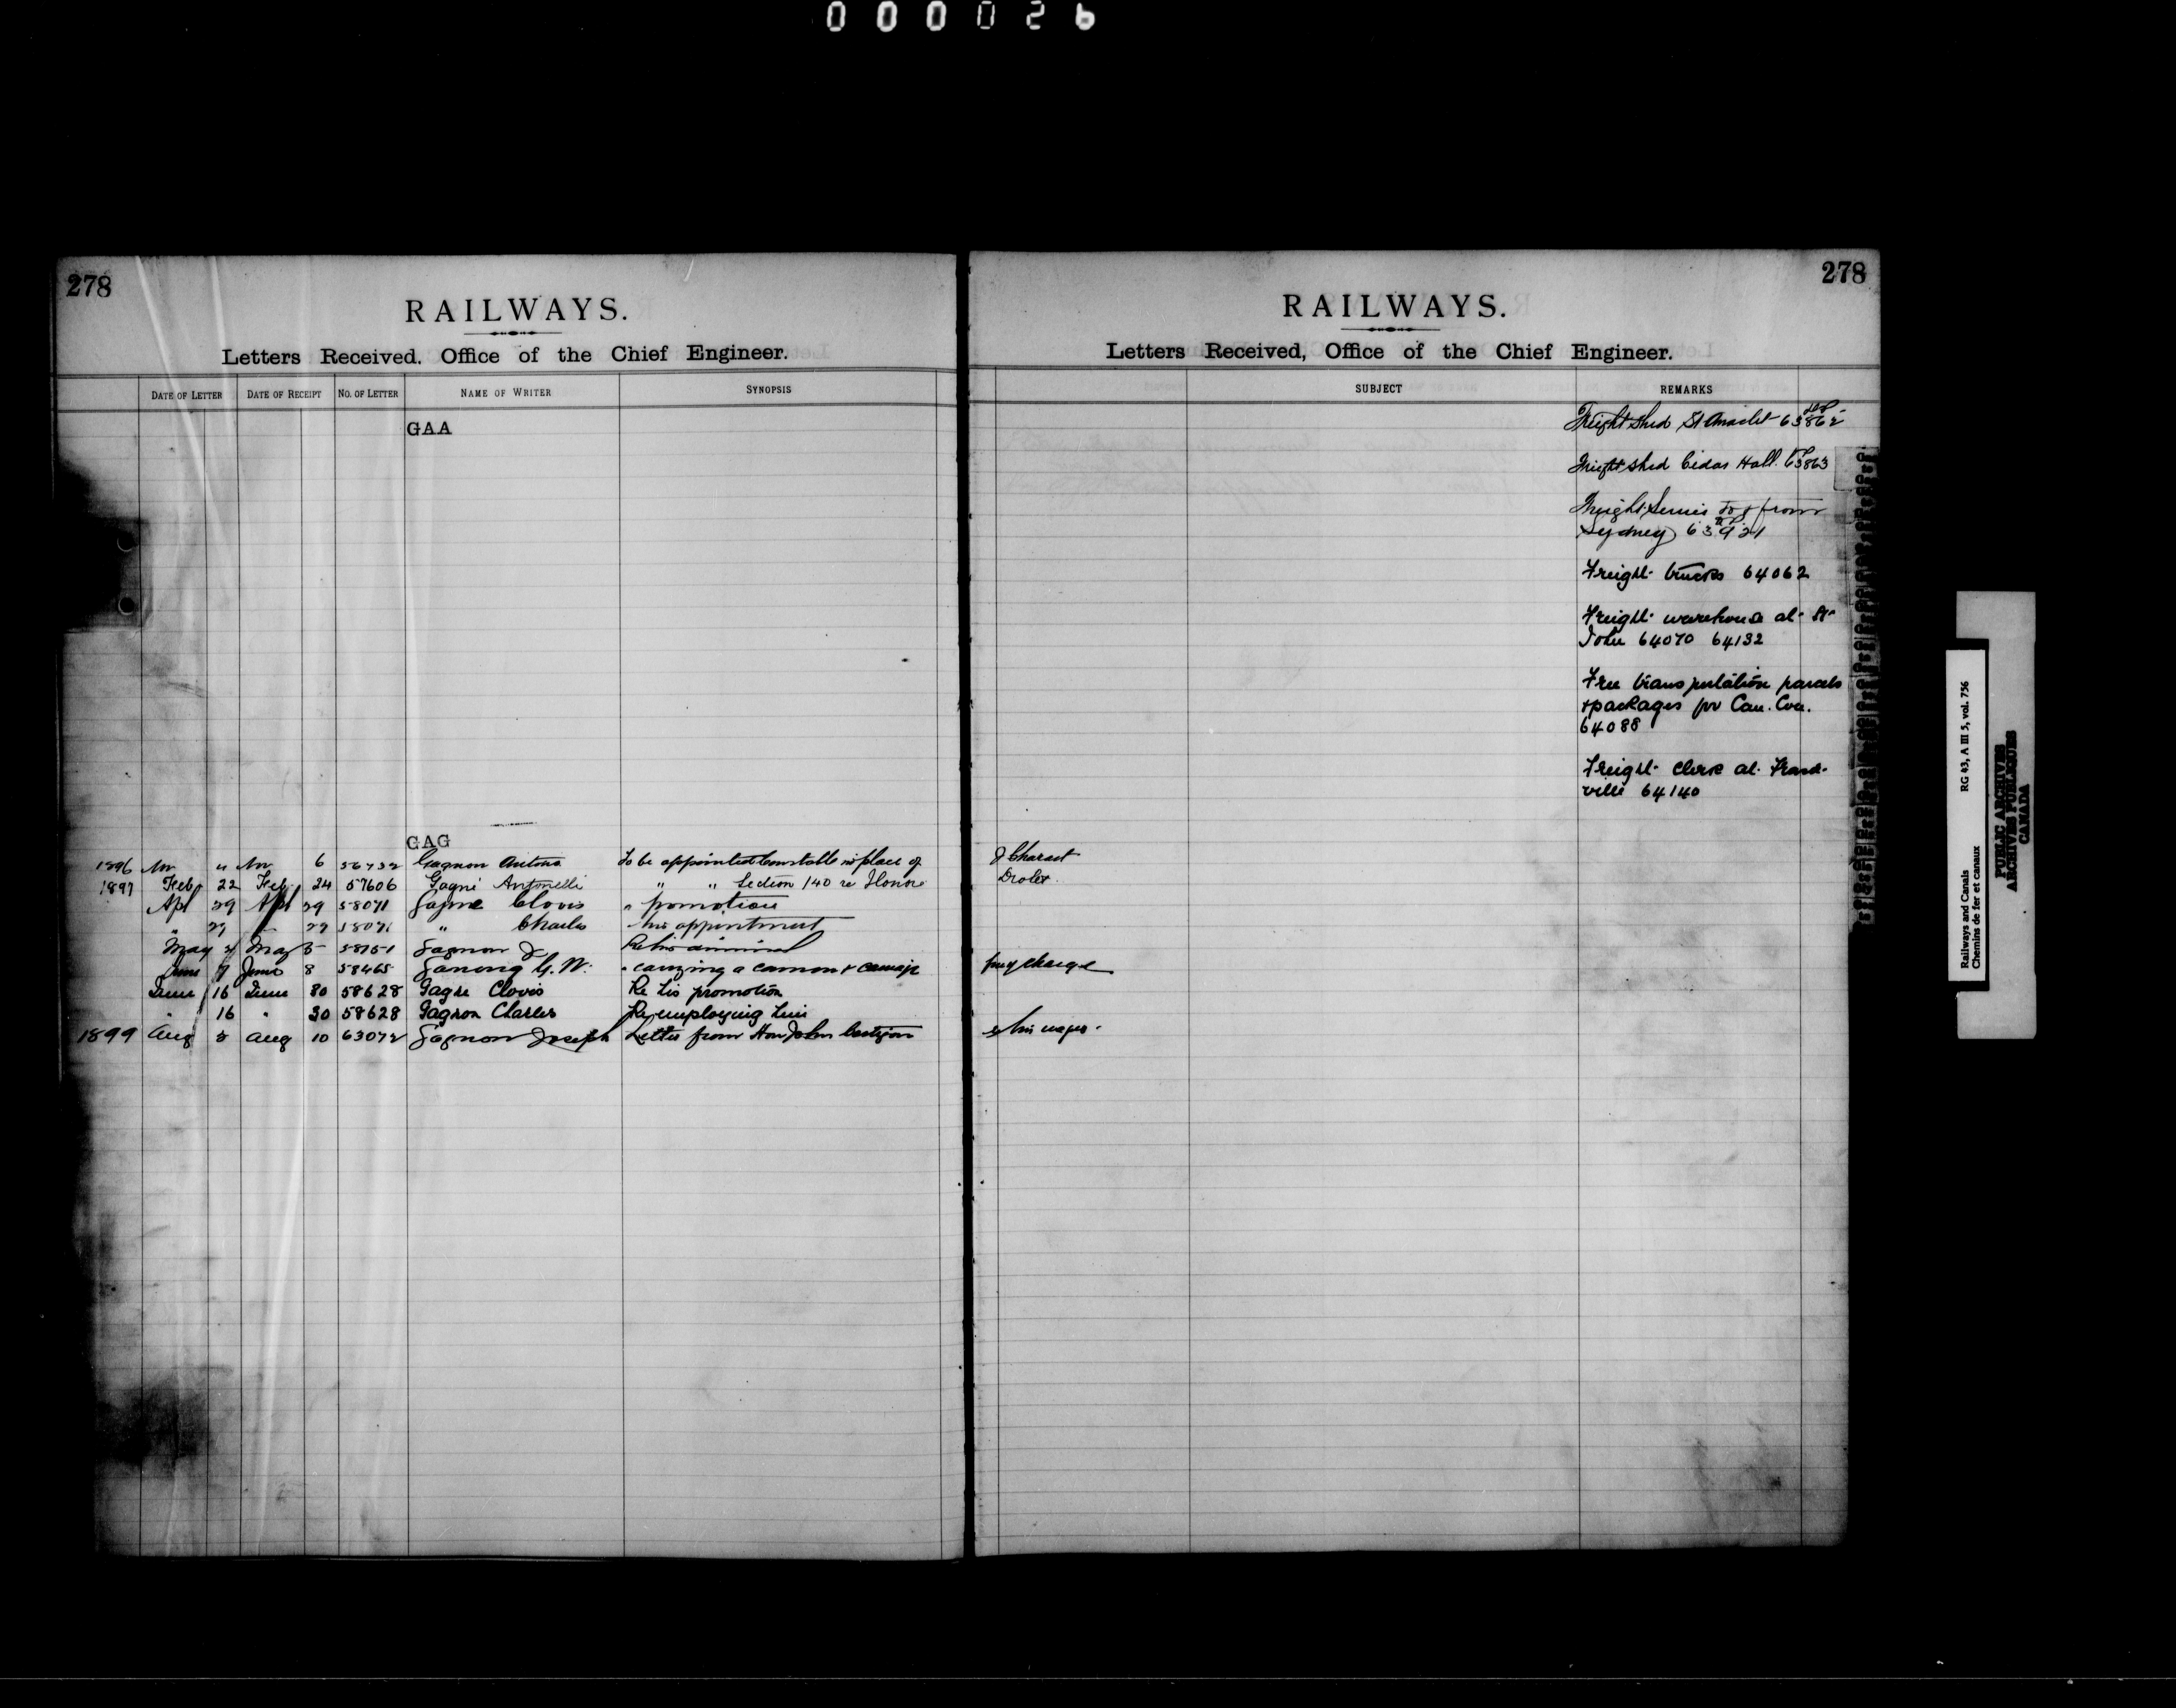 000026
278
RAILWAYS.
Letters Received, Office of the Chief Engineer.
DATE OF LETTER DATE OF RECEIPT NO. OF LETTER NAME OF WRITER SYNOPSIS
GAA
GAG
1896 Nov 4 Nov 6 56732 Gagnon Antoine To be appointed Constable in place of
1897 Feb 22 Feb 24 57606 Gagné " " Section 140 re
Apl 29 Apl 29 58071 Gagne Clovis " promotion
" 29 29 58071 " Charles his appointment
May 4 May 5 58151 Gagnon J Re his dismissal
June 7 June 8 58465 Ganong G. W. " carrying a cannon & carriage
June 16 June 30 58628 Gagne Clovis Re his promotion
" 16 " 30 58628 Gagnon Charles Re employing him
1899 Aug 8 Aug 10 63072 Gagnon Joseph Letter from Hon John Costigan
278
RAILWAYS.
Letters Received, Office of the Chief Engineer.
SUBJECT REMARKS
Freight shed St Anaclet 63862
Freight shed Cedar Hall. 63863
Freight Service to & from
Sydney 63921
Freight trucks 64062
Freight warehouse at St
John 64070 64132
Free transportation parcels
& packages for Can. Con.
64088
Freight Clerk at Fraser-
ville 64140
Drolet
free of charge
re his wages.
Railways and Canals RG 43, A III 5, vol. 756
Chemins de fer et canaux
PUBLIC ARCHIVES
ARCHIVES PUBLIQUES
CANADA